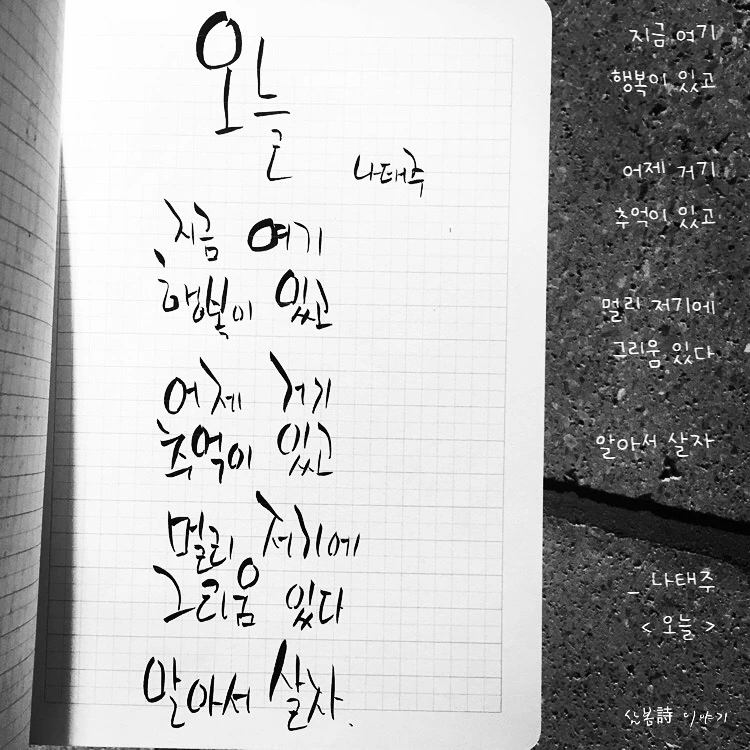 오늘
나태주
지금 여기
행복이 있고
어제 거기
추억이 있고
멀리 저기에
그리움 있다
알아서 살자.
지금 여기
행복이 있고
어제 거기
추억이 있고
멀리 저기에
그리움 있다
알아서 살자
_ 나태주
< 오늘 >
詩 이야기